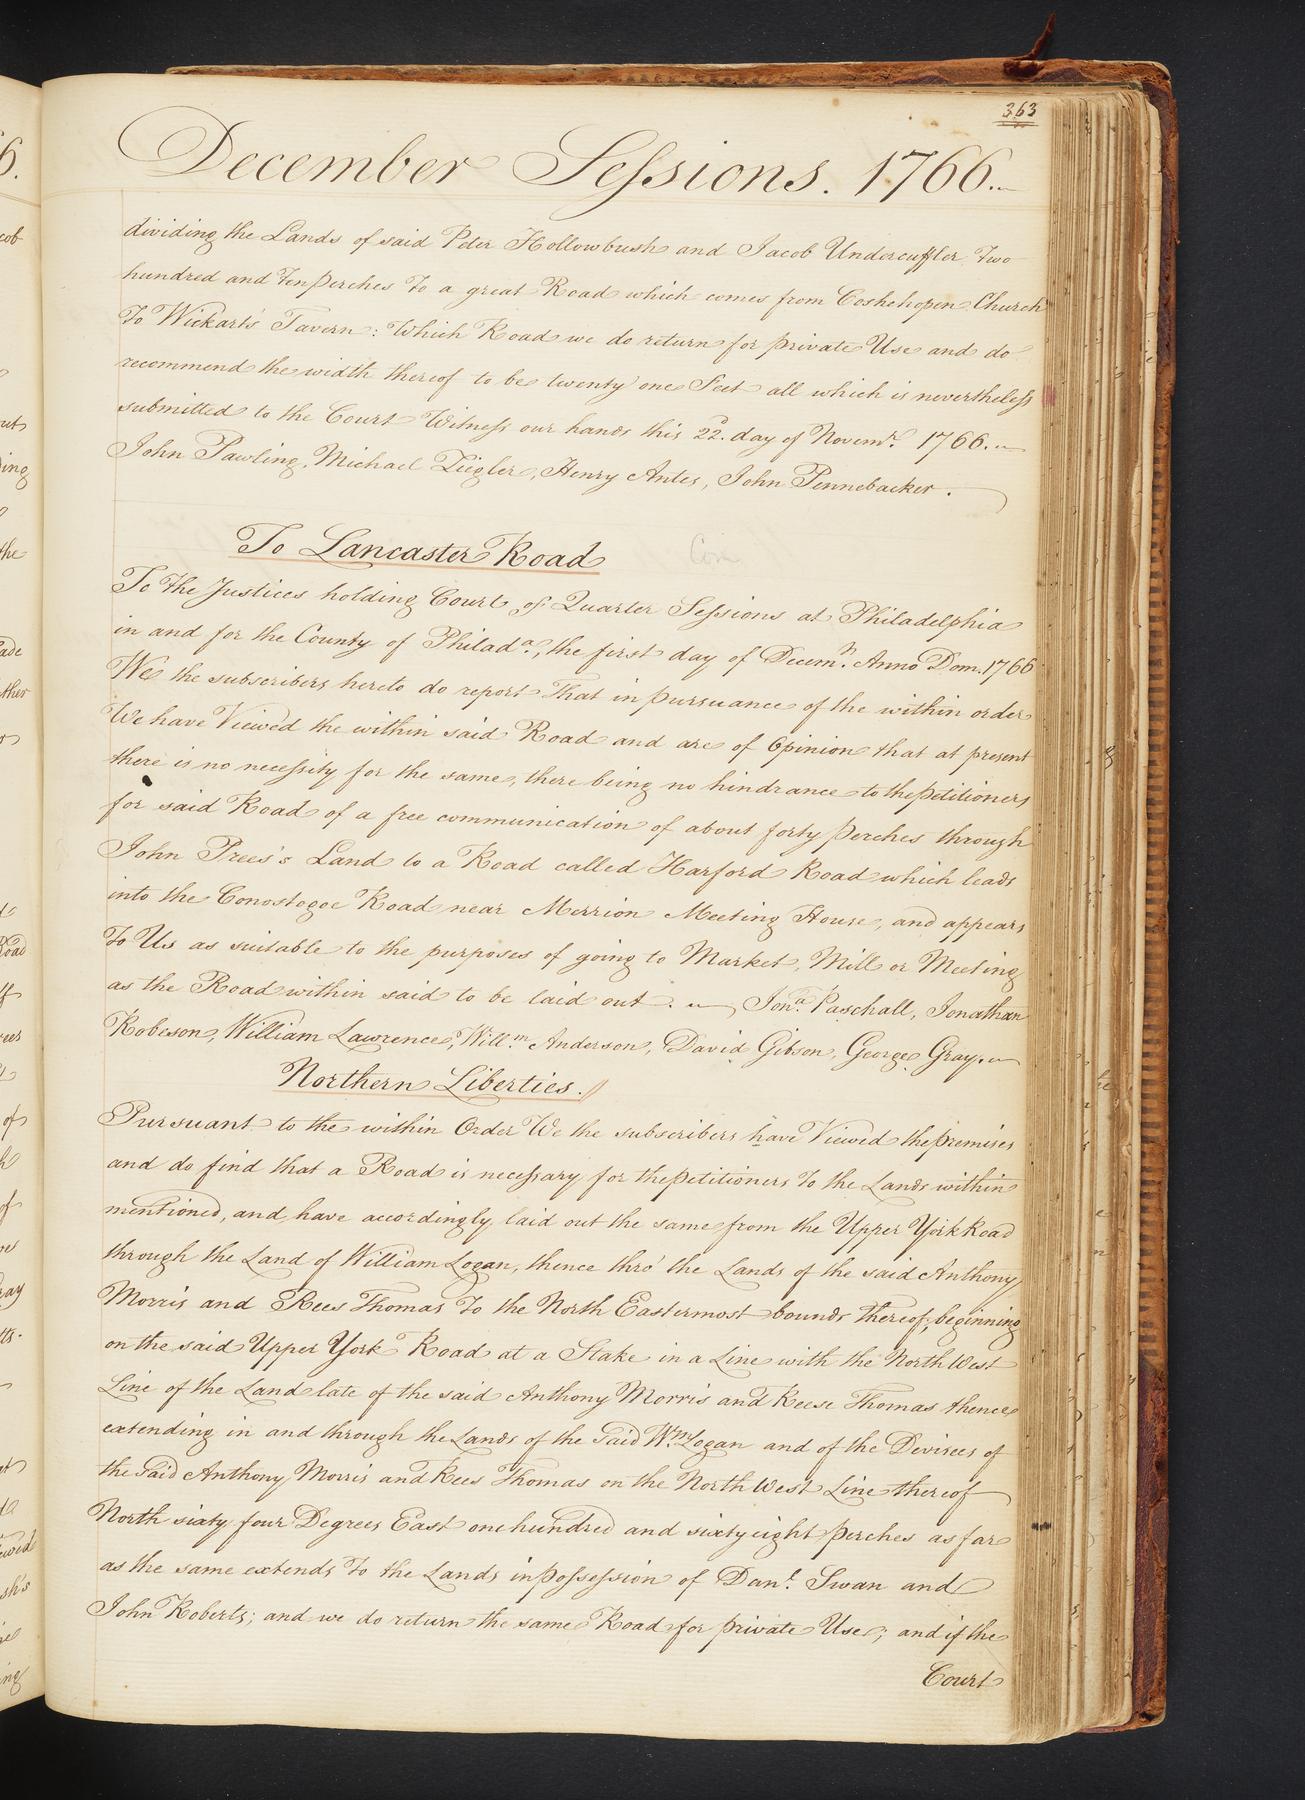 363
December Sessions. 1766.
dividing the Lands of said Peter Hollowbush and Jacob Undercuffler Two
hundred and Ten perches To a great Road which comes from Coshehopen Church
To Wickart's Tavern: Which Road we do return for private Use and do
recommend the width thereof to be twenty one Feet all which is nevertheless
submitted to the Court Witness our hands this 22d. day of Novemr. 1766.
John Pawling, Michael Ziegler, Henry Antes, John Pennebacker.
To Lancaster Road
To the Justices holding Court of Quarter Sessions at Philadelphia
in and for the County of Philada., the first day of Decemr. Anno Dom. 1766
We the subscribers hereto do report That in pursuance of the within order
We have Viewed the within said Road and are of Opinion that at present
there is no necessity for the same, there being no hindrance to the petitioners
for said Road of a free communication of about forty perches through
John Prees's Land to a Road called Harford Road which leads
into the Conostogoe Road near Merrion Meeting House, and appears
To Us as suitable to the purposes of going to Market, Mill or Meeting
as the Road within said to be laid out. Jona. Paschall, Jonathan
Robeson, William Lawrence, Willm. Anderson, David Gibson, George Gray.
Northern Liberties.
Pursuant to the within Order We the subscribers have Viewed the premises
and do find that a Road is necessary for the petitioners To the Lands within
mentioned, and have accordingly laid out the same from the Upper York Road
through the Land of William Logan, thence thro' the Lands of the said Anthony
Morris and Rees Thomas To the North Eastermost bounds thereof; beginning
on the said Upper York Road at a Stake in a Line with the North West
Line of the Land late of the said Anthony Morris and Reese Thomas thence
extending in and through the Lands of the said Wm. Logan and of the Devisees of
the said Anthony Morris and Rees Thomas on the North West Line thereof
North sixty four Degrees East one hundred and sixty eight perches as far
as the same extends To the Lands in possession of Danl. Swan and
John Roberts; and we do return the same Road for private Use; and if the
Court